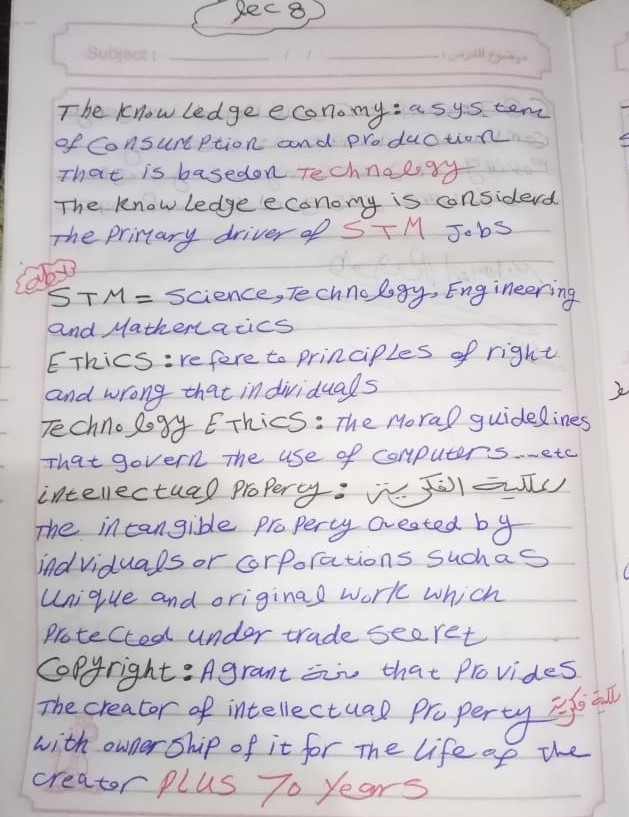 lec 8
Subject : / / موضوع الدرس :
The Knowledge economy: a system
of Consumption and production
That is basedon Technology
The Knowledge economy is considerd
The Primary driver of STM Jobs
STM = Science, Technology, Engineering
and Mathematics
EThics : refere to Principles of right
and wrong that individuals
Technology EThics : The Moral guidelines
That govern The use of computers ... etc
intellectual Property : الفكرية
The intangible Property created by
indviduals or corporations suchas
Unique and original work which
Protected under trade secret
Copyright : A grant منحة that Provides
The creator of intellectual Property
with ownership of it for The life of the
creator PLUS 70 Years